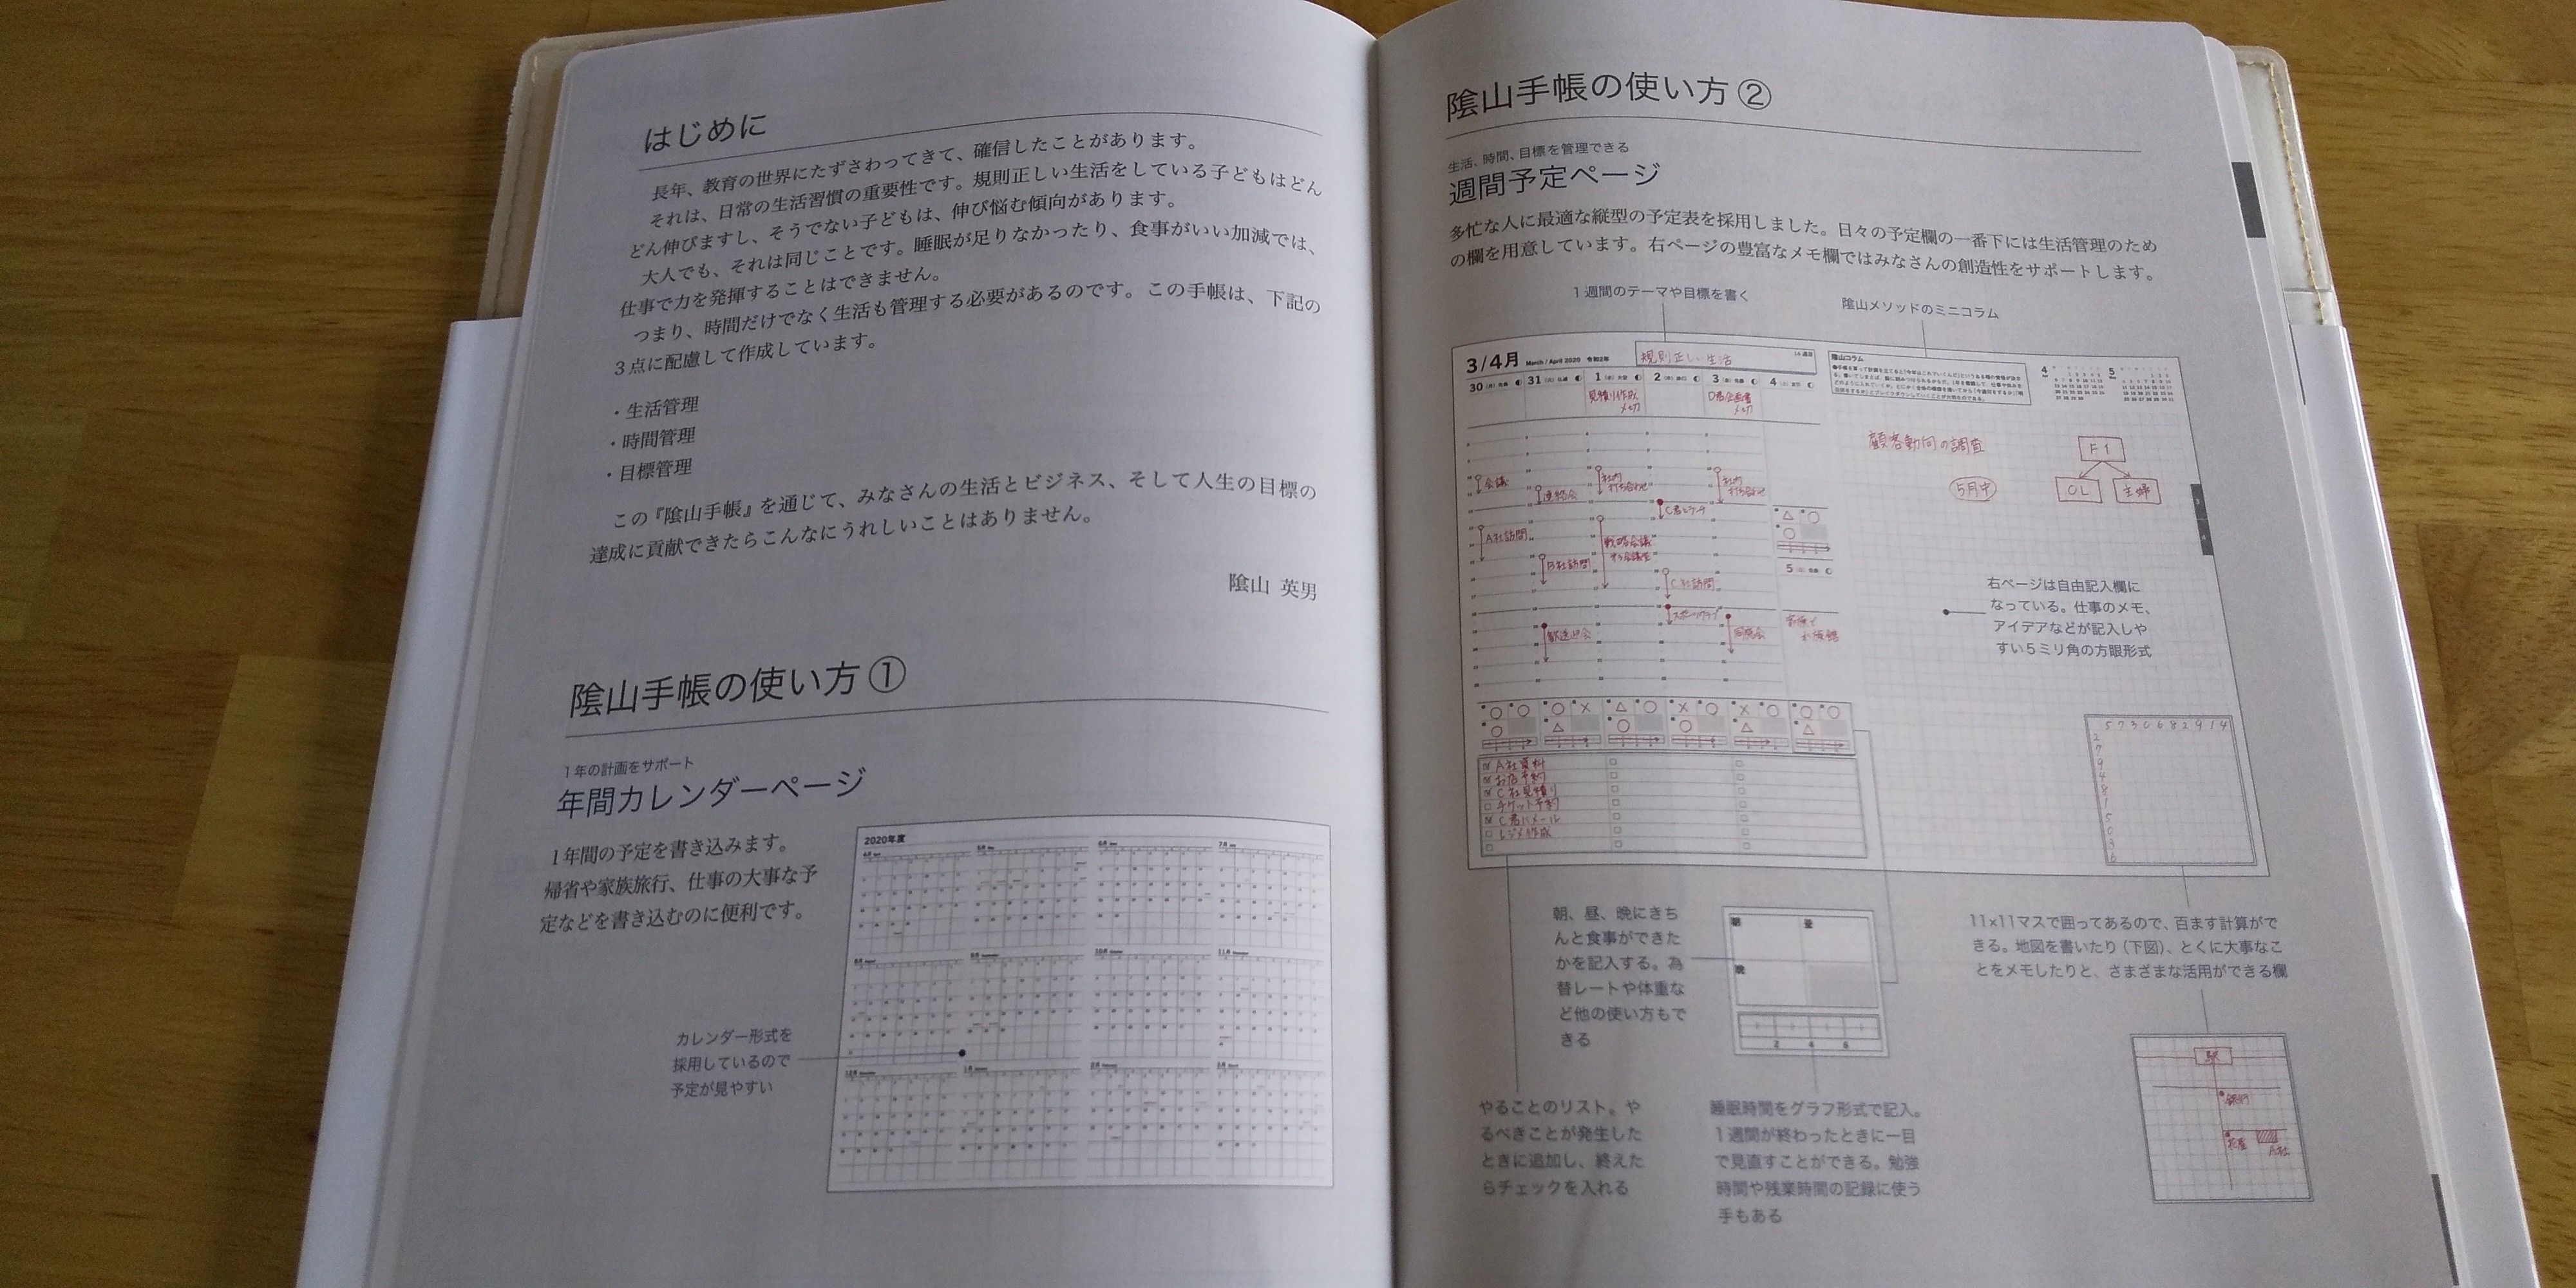 はじめに
長年、教育の世界にたずさわってきて、確信したことがあります。
それは、日常の生活習慣の重要性です。規則正しい生活をしている子どもはどん
どん伸びますし、そうでない子どもは、伸び悩む傾向があります。
大人でも、それは同じことです。睡眠が足りなかったり、食事がいい加減では、
仕事で力を発揮することはできません。
つまり、時間だけでなく生活も管理する必要があるのです。この手帳は、下記の
3点に配慮して作成しています。
・生活管理
・時間管理
・目標管理
この『陰山手帳』を通じて、みなさんの生活とビジネス、そして人生の目標の
達成に貢献できたらこんなにうれしいことはありません。
陰山 英男
陰山手帳の使い方①
1年の計画をサポート
年間カレンダーページ
1年間の予定を書き込みます。
帰省や家族旅行、仕事の大事な予
定などを書き込むのに便利です。
2020年度
カレンダー形式を
採用しているので
予定が見やすい
陰山手帳の使い方②
生活、時間、目標を管理できる
週間予定ページ
多忙な人に最適な縦型の予定表を採用しました。日々の予定欄の一番下には生活管理のため
の欄を用意しています。右ページの豊富なメモ欄ではみなさんの創造性をサポートします。
1週間のテーマや目標を書く
陰山メソッドのミニコラム
3/4月 March / April 2020 令和2年
規則正しい生活
陰山コラム
4
5
30
31
1
2
3
4
見積り作成
〆切
D君企画書
〆切
顧客動向の調査
5月中
F1
OL
主婦
会議
連絡会
社内
打ち合わせ
社内
打ち合わせ
C君とランチ
A社訪問
B社訪問
戦略会議
C社訪問
スポーツクラブ
歓送迎会
同窓会
5
右ページは自由記入欄に
なっている。仕事のメモ、
アイデアなどが記入しや
すい5ミリ角の方眼形式
A社資料
お店予約
C社見積り
チケット予約
C君にメール
レジメ作成
5 7 3 0 6 8 2 9 1 4
2
7
9
4
8
1
5
0
3
6
朝、昼、晩にきち
んと食事ができた
かを記入する。為
替レートや体重な
ど他の使い方もで
きる
朝
昼
晩
2 4 6
11×11マスで囲ってあるので、百ます計算がで
きる。地図を書いたり（下図）、とくに大事なこ
とをメモしたりと、さまざまな活用ができる欄
駅
銀行
花屋
A社
やることのリスト。や
るべきことが発生した
ときに追加し、終えた
らチェックを入れる
睡眠時間をグラフ形式で記入。
1週間が終わったときに一目
で見直すことができる。勉強
時間や残業時間の記録に使う
手もある